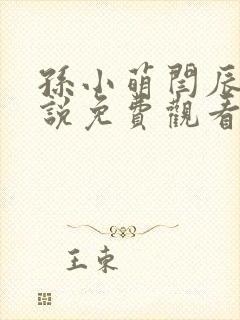 孫小萌閆辰
說免費觀看
王東